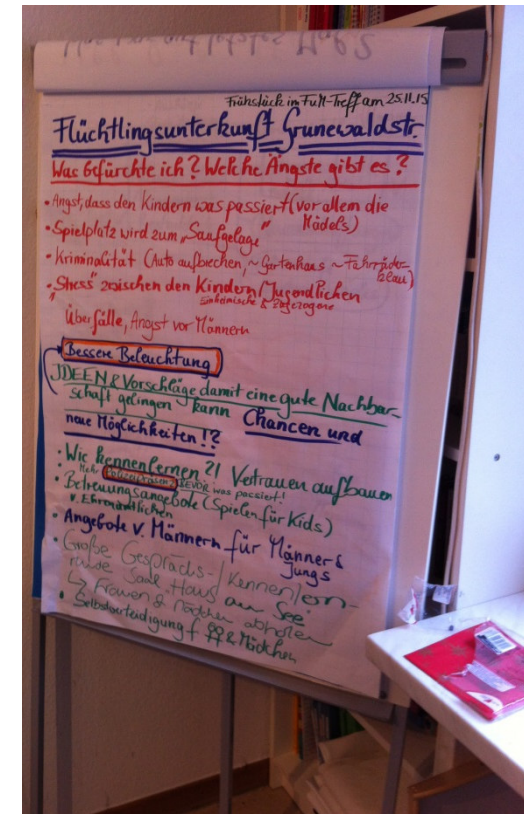 Frühstück im FuN-Treff am 25.11.15
Flüchtlingsunterkunft Grunewaldstr.
Was befürchte ich? Welche Ängste gibt es?
• Angst, dass den Kindern was passiert (vor allem die
Mädels)
• Spielplatz wird zum „Saufgelage“
• Kriminalität (Auto aufbrechen, ~ Gartenhaus ~ Fahrräder
klau)
• „Stress“ zwischen den Kindern/Jugendlichen
Einheimische & zugezogene
Überfälle, Angst vor Männern
Bessere Beleuchtung
IDEEN & Vorschläge damit eine gute Nachbar-
schaft gelingen kann Chancen und
neue Möglichkeiten!?
• Wie kennenlernen?! Vertrauen aufbauen
Mehr Polizeipräsenz BEVOR was passiert!
• Betreuungsangebote (Spielen für Kids)
v. Ehrenamtlichen
• Angebote v. Männern für Männer &
Jungs
• Große Gesprächs-/Kennenlern-
runde Saal „Haus am See“
↳ Frauen & Mädchen abholen
• Selbstverteidigung f. ♀♀ & Mädchen